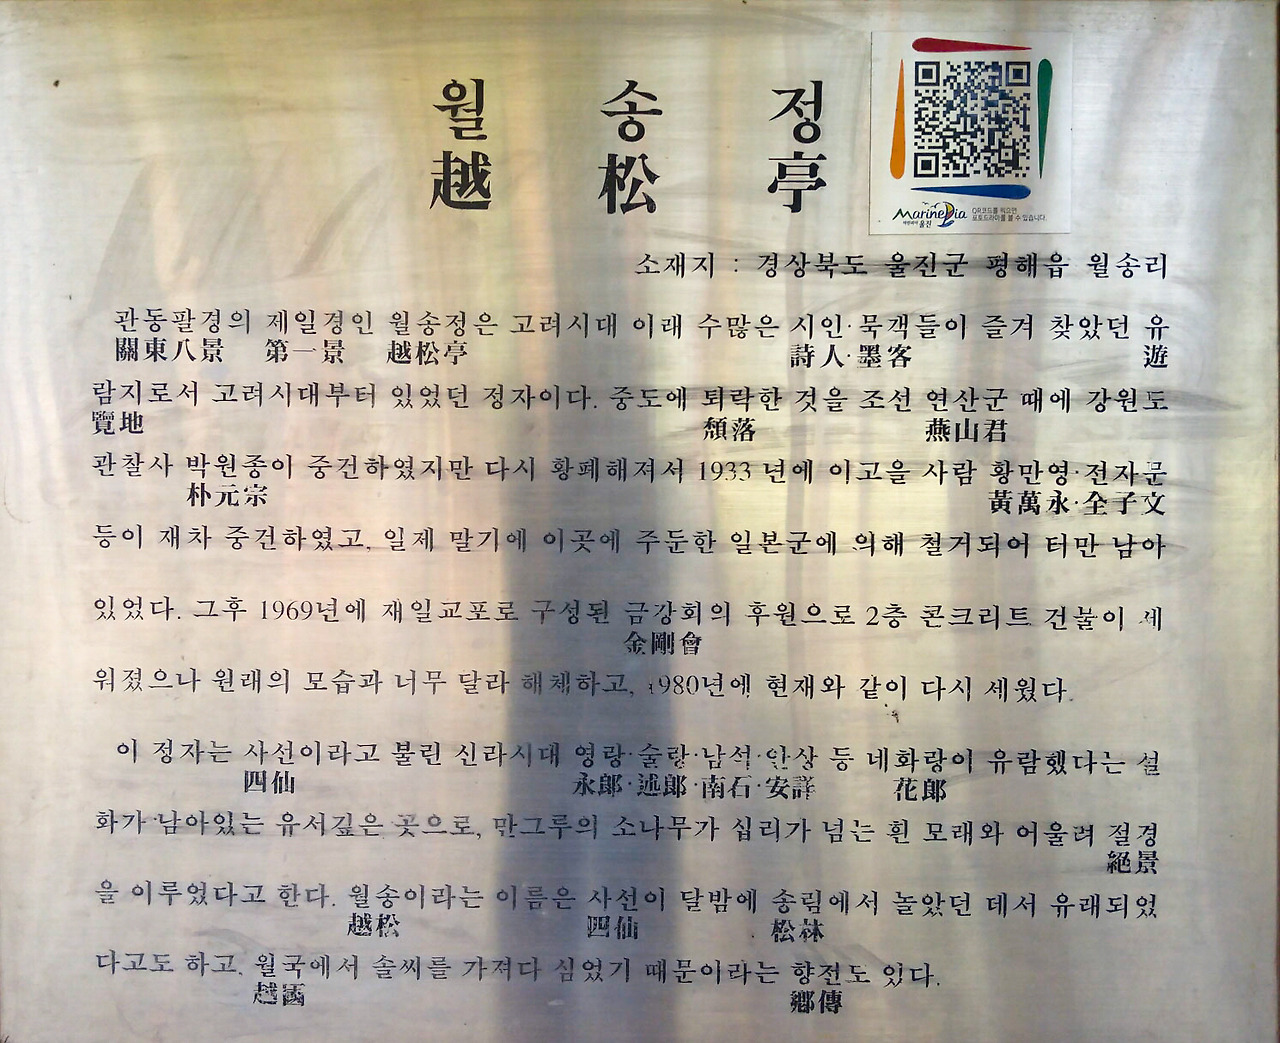 월 송 정
越 松 亭
MarinePia
마린피아 울진
QR코드를 찍으면
포토드라마를 볼 수 있습니다.
소재지 : 경상북도 울진군 평해읍 월송리
관동팔경의 제일경인 월송정은 고려시대 이래 수많은 시인·묵객들이 즐겨 찾았던 유
關東八景 第一景 越松亭 詩人·墨客 遊
람지로서 고려시대부터 있었던 정자이다. 중도에 퇴락한 것을 조선 연산군 때에 강원도
覽地 頹落 燕山君
관찰사 박원종이 중건하였지만 다시 황폐해져서 1933년에 이고을 사람 황만영·전자문
朴元宗 黃萬永·全子文
등이 재차 중건하였고, 일제 말기에 이곳에 주둔한 일본군에 의해 철거되어 터만 남아
있었다. 그후 1969년에 재일교포로 구성된 금강회의 후원으로 2층 콘크리트 건물이 세
金剛會
워졌으나 원래의 모습과 너무 달라 해체하고, 1980년에 현재와 같이 다시 세웠다.
이 정자는 사선이라고 불린 신라시대 영랑·술랑·남석·안상 등 네화랑이 유람했다는 설
四仙 永郞·述郞·南石·安詳 花郞
화가 남아있는 유서깊은 곳으로, 만그루의 소나무가 십리가 넘는 흰 모래와 어울려 절경
絕景
을 이루었다고 한다. 월송이라는 이름은 사선이 달밤에 송림에서 놀았던 데서 유래되었
越松 四仙 松林
다고도 하고, 월국에서 솔씨를 가져다 심었기 때문이라는 향전도 있다.
越國 鄕傳